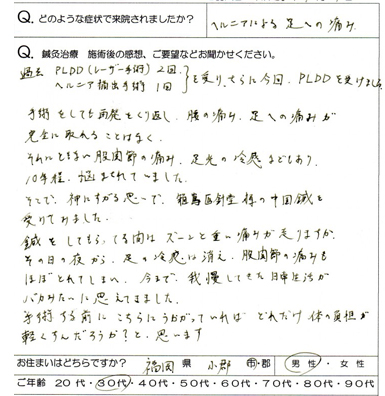 Q. どのような症状で来院されましたか？ ヘルニアによる足への痛み
Q. 鍼灸治療 施術後の感想、ご要望などお聞かせください。
過去 PLDD(レーザー手術) 2回、
ヘルニア摘出手術 1回 }を受け、さらに今回、PLDDを受けました
手術をしても再発をくり返し、腰の痛み、足への痛みが
完全に取れることはなく、
それにともない股関節の痛み、足先の冷感などもあり、
10年程、悩まされていました。
そこで、神にすがる思いで、 様の中国鍼を
受けてみました。
鍼をしてもらってる間はズーンと重い痛みが走りますが、
その日の夜から、足の冷感は消え、股関節の痛みも
ほぼとれてしまい、今まで、我慢してきた日常生活が
バカみたいに思えてきました。
手術する前にこちらにうかがっていれば どれだけ体の負担が
軽くすんだろうか?と、思います
お住まいはどちらですか？ 福岡 県 小郡 市・郡 男性・女性
ご年齢 20代・30代・40代・50代・60代・70代・80代・90代